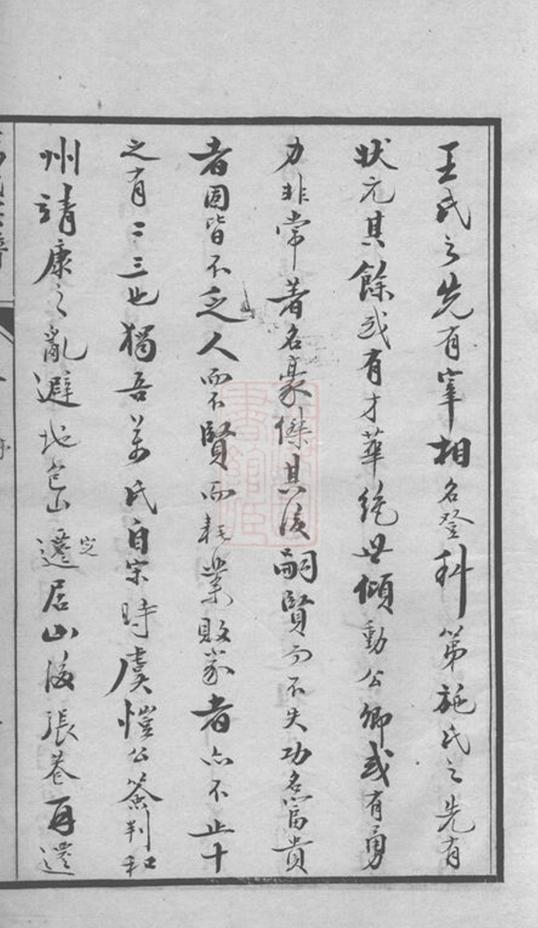 王氏之先有宰相名登科第施氏之先有
狀元其餘或有才華絶世傾動公卿或有勇
力非常著名豪傑其後嗣賢而不失功名富貴
者固皆不乏人而不賢而耗業敗家者亦不止十
之有二三也獨吾葛氏自宋時虞愷公簽判和
州靖康之亂避地包山遷定居山後張巷再遷